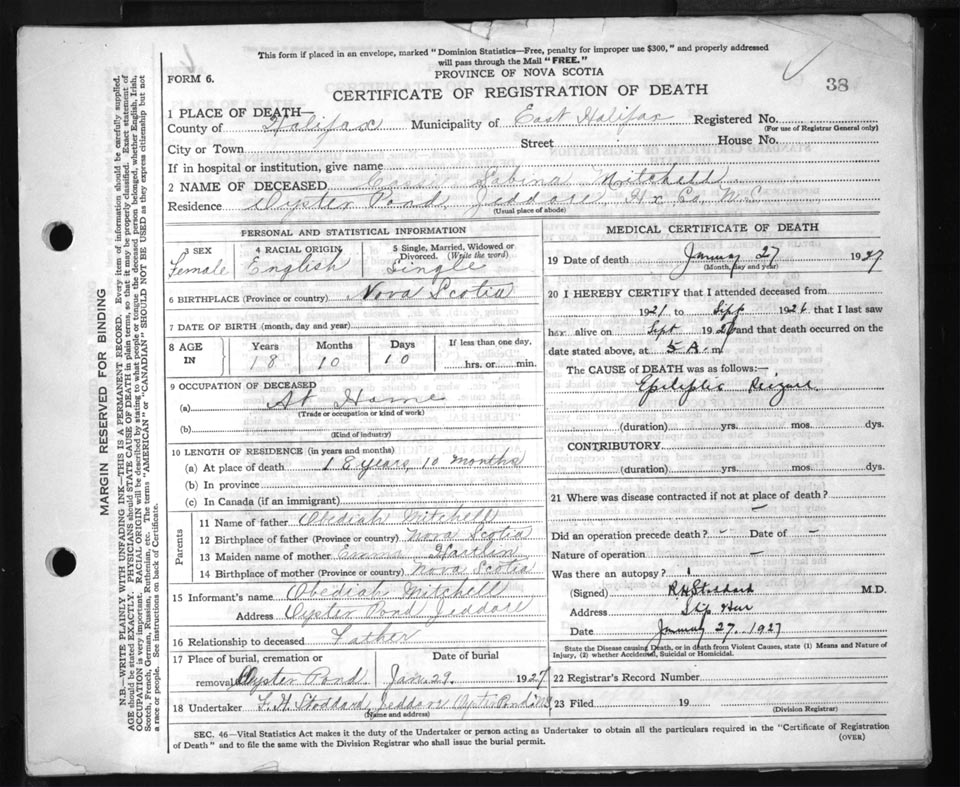 This form if placed in an envelope, marked "Dominion Statistics—Free, penalty for improper use $300," and properly addressed
will pass through the Mail "FREE."
PROVINCE OF NOVA SCOTIA
FORM 6.
38
CERTIFICATE OF REGISTRATION OF DEATH
1 PLACE OF DEATH—
County of Halifax Municipality of East Halifax Registered No.
(For use of Registrar General only)
City or Town Street House No.
If in hospital or institution, give name
2 NAME OF DECEASED Sabina Mitchell
Residence Oyster Pond Jeddore Hx Co. N.S.
(Usual place of abode)
PERSONAL AND STATISTICAL INFORMATION
3 SEX
Female
4 RACIAL ORIGIN
English
5 Single, Married, Widowed or
Divorced. (Write the word)
Single
6 BIRTHPLACE (Province or country) Nova Scotia
7 DATE OF BIRTH (month, day and year)
8 AGE
IN
Years Months Days If less than one day,
18 10 10 hrs. or min.
9 OCCUPATION OF DECEASED
(a) At Home
(Trade or occupation or kind of work)
(b)
(Kind of industry)
10 LENGTH OF RESIDENCE (in years and months)
(a) At place of death 18 years, 10 months
(b) In province
(c) In Canada (if an immigrant)
Parents
11 Name of father Obediah Mitchell
12 Birthplace of father (Province or country) Nova Scotia
13 Maiden name of mother Emma
14 Birthplace of mother (Province or country) Nova Scotia
15 Informant's name Obediah Mitchell
Address Oyster Pond Jeddore
16 Relationship to deceased Father
17 Place of burial, cremation or Date of burial
removal Oyster Pond Jan. 29. 1927
18 Undertaker F. H. Stoddard, Jeddore Oyster Pond N.S.
(Name and address)
MEDICAL CERTIFICATE OF DEATH
19 Date of death January 27 1927
(Month, day and year)
20 I HEREBY CERTIFY that I attended deceased from
1921 to Sept 1926 that I last saw
her alive on Sept 1926 and that death occurred on
date stated above, at 5 A. m
The CAUSE of DEATH was as follows:—
Epileptic Seizure
(duration) yrs. mos. dys.
CONTRIBUTORY
(duration) yrs. mos. dys.
21 Where was disease contracted if not at place of death?
—
Did an operation precede death? – Date of –
Nature of operation –
Was there an autopsy?
(Signed) R H Stoddard M.D.
Address Ship Har
Date January 27. 1927
State the Disease causing Death, or in death from Violent Causes, state (1) Means and Nature of
Injury, (2) whether Accidental, Suicidal or Homicidal.
22 Registrar's Record Number
23 Filed 19
(Division Registrar)
SEC. 46—Vital Statistics Act makes it the duty of the Undertaker or person acting as Undertaker to obtain all the particulars required in the "Certificate of Registration
of Death" and to file the same with the Division Registrar who shall issue the burial permit.
(OVER)
MARGIN RESERVED FOR BINDING
N.B.—WRITE PLAINLY WITH UNFADING INK—THIS IS A PERMANENT RECORD. Every item of information should be carefully supplied.
AGE should be stated EXACTLY. PHYSICIANS should STATE CAUSE OF DEATH in plain terms, so that it may be properly classified. Exact statement of
OCCUPATION is very important. RACIAL ORIGIN will be described by stating to what people or tongue the deceased person belonged, whether English, Irish,
Scotch, French, German, Russian, Ruthenian, etc. The terms "AMERICAN" or "CANADIAN" SHOULD NOT BE USED as they express citizenship but not
a race or people. See instructions on back of Certificate.